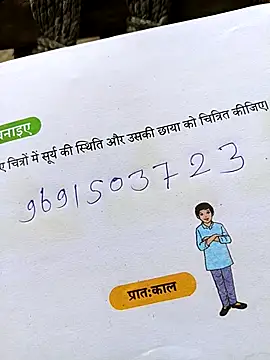 नाइए
ए चित्रों में सूर्य की स्थिति और उसकी छाया को चित्रित कीजिए।
9691503723
प्रात:काल